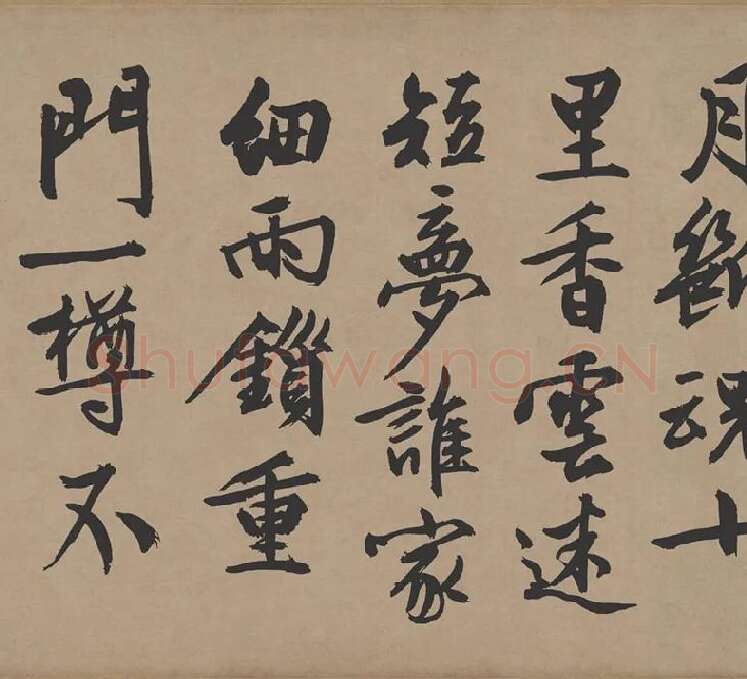 月斷魂十
里香雲迷
短夢誰家
細雨鎖重
門一樽不
shufawang.CN